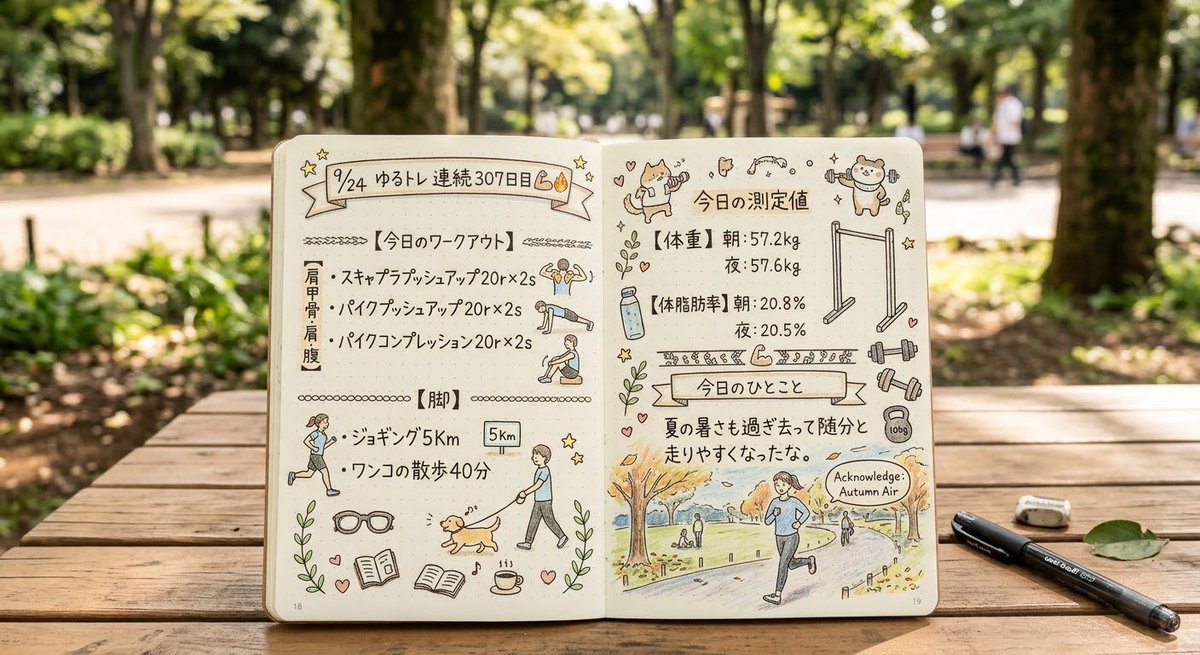 9/24 ゆるトレ 連続307日目💪🔥
【今日のワークアウト】
【肩甲骨・肩・腹】
・スキャプラプッシュアップ20r×2s
・パイクプッシュアップ20r×2s
・パイクコンプレッション20r×2s
【脚】
・ジョギング5Km
5Km
・ワンコの散歩40分
18
今日の測定値
【体重】朝:57.2kg
夜:57.6kg
【体脂肪率】朝:20.8%
夜:20.5%
今日のひとこと
夏の暑さも過ぎ去って随分と
走りやすくなったな。
Acknowledge:
Autumn Air
19